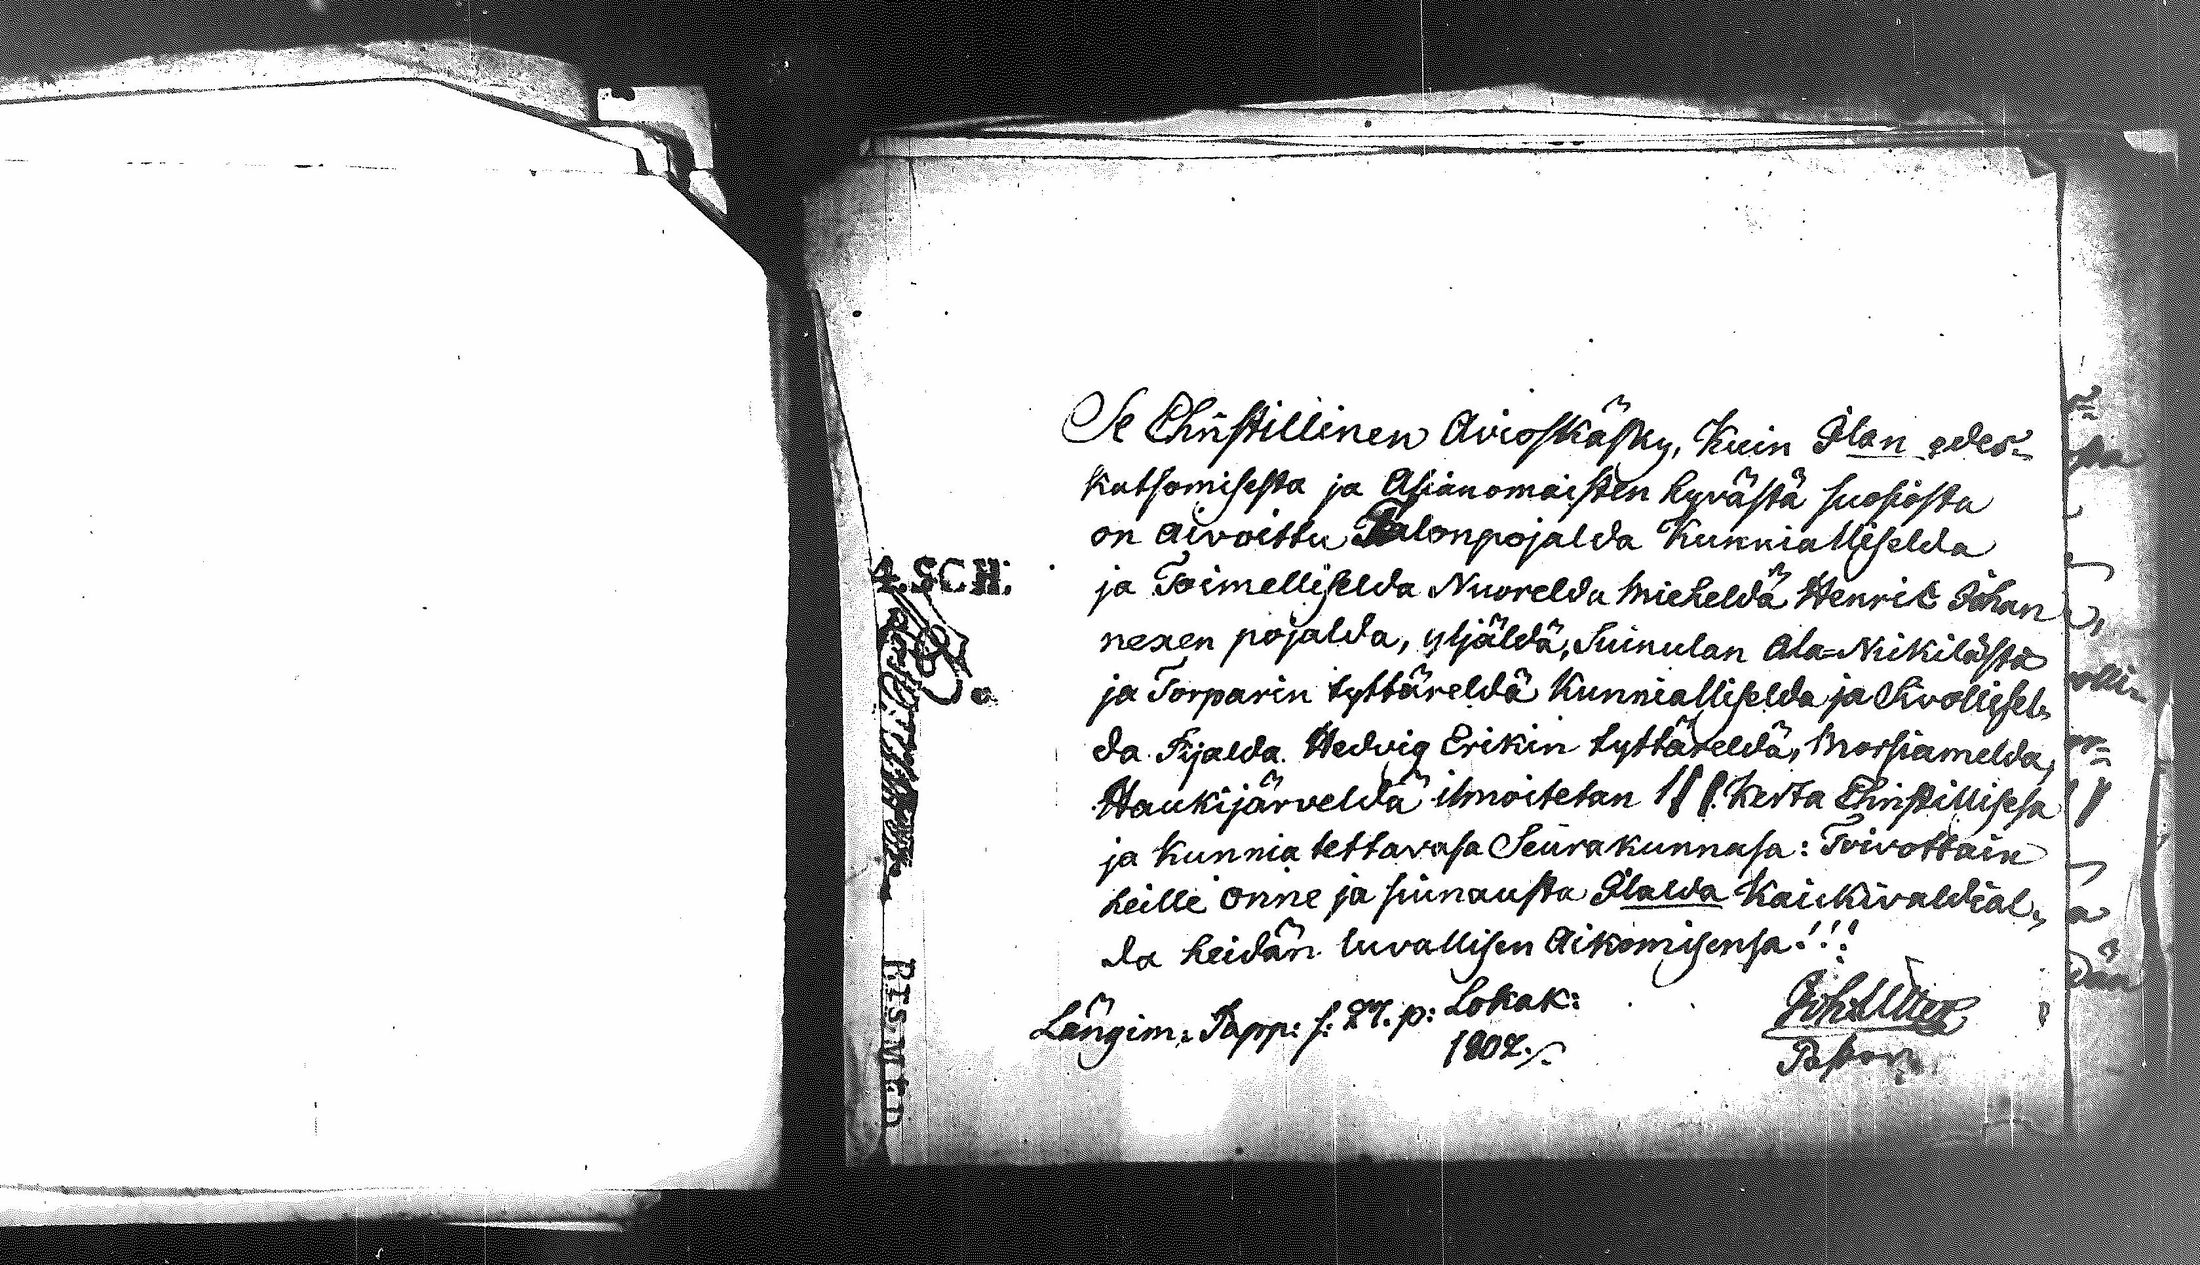 Se Christillinen Avioskäsky, Kuin Jlan edes-
katsomisesta ja Asianomaisten hyvästä suosiosta
on aivoittu Talonpojalda Kunnialliselda
ja Toimelliselda Nuorelda Mieheldä Henric Johan
nexen pojalda, yljäldä, Suinulan Ala=Nikilästä
ja Torparin tyttäreldä Kunnialliselda ja Sivollisel-
da Pijalda Hedvig Erikin tyttäreldä, Morsiamelda,
Haukijärveldä ilmoitetan Kerta Christillisesä
ja kunnia tettavasa Seurakunnasa: Toivottain
heille onne ja siunausta Jlalda Kaickivaldial-
da heidän luvallisen Aikomisensa!!!
Längim: Papp: s: 27. p: Lokak:
1802.
Pastor
A.SCH: